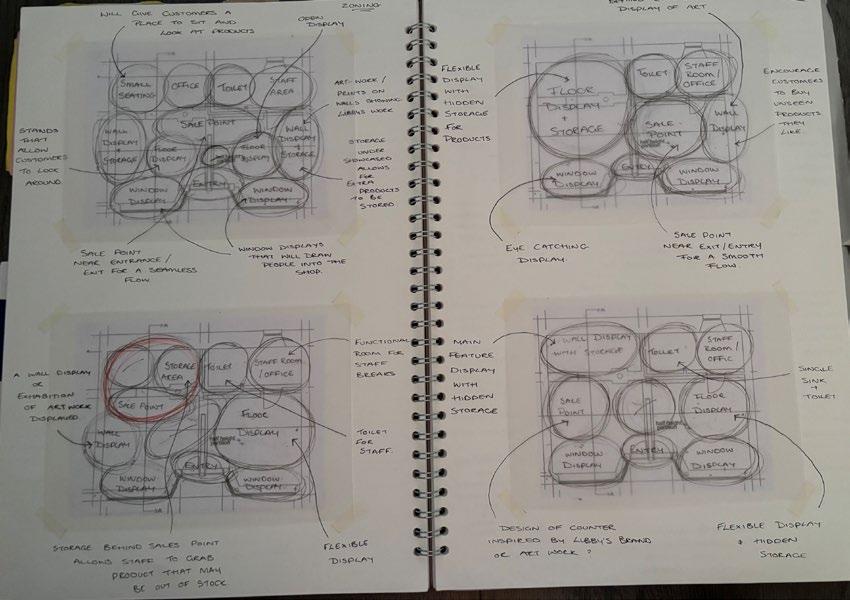 ZONING
WILL GIVE CUSTOMERS A
PLACE TO SIT AND
LOOK AT PRODUCTS
OPEN
DISPLAY
SMALL
SEATING
OFFICE
TOILET
STAFF
AREA
ART-WORK /
PRINTS ON
WALLS SHOWING
LIBBYS WORK
STANDS
THAT
ALLOW
CUSTOMERS
TO LOOK
AROUND.
WALL
DISPLAY
+
STORAGE
SALE POINT
FLOOR
DISPLAY
FLOOR
DISPLAY
WALL
DISPLAY
+
STORAGE
STORAGE
UNDER
SHOWCASED
ALLOWS
FOR
EXTRA
PRODUCTS
TO BE
STORED
WINDOW
DISPLAY
ENTRY
WINDOW
DISPLAY
SALE POINT
NEAR ENTRANCE /
EXIT FOR A SEAMLESS
FLOW.
WINDOW DISPLAYS
THAT WILL DRAW
PEOPLE INTO THE
SHOP.
A WALL DISPLAY
OR
EXHIBITION
OF ARTWORK
DISPLAYED.
STORAGE
AREA
TOILET
STAFF ROOM
/OFFICE
SALE POINT
WALL
DISPLAY
FLOOR
DISPLAY
half height
partition
ENTRY
WINDOW
DISPLAY
WINDOW
DISPLAY
FUNCTIONAL
ROOM FOR
STAFF
BREAKS
TOILET
FOR
STAFF.
STORAGE BEHIND SALES POINT
ALLOWS STAFF TO GRAB
PRODUCT THAT MAY
BE OUT OF STOCK
FLEXIBLE
DISPLAY
DISPLAY OF ART
FLEXIBLE
DISPLAY
WITH
HIDDEN
STORAGE
FOR
PRODUCTS
FLOOR
DISPLAY
+
STORAGE
TOILET
STAFF
ROOM /
OFFICE
SALE
POINT
WALL
DISPLAY
WINDOW
DISPLAY
ENTRY
WINDOW
DISPLAY
ENCOURAGE
CUSTOMERS
TO BUY
UNSEEN
PRODUCTS
THEY
LIKE.
EYE CATCHING
DISPLAY.
SALE POINT
NEAR EXIT/ENTRY
FOR A SMOOTH
FLOW.
MAIN
FEATURE
DISPLAY
WITH
HIDDEN
STORAGE
WALL DISPLAY
WITH STORAGE
TOILET
STAFF
ROOM /
OFFIC
SALE
POINT
half height
partition
FLOOR
DISPLAY
WINDOW
DISPLAY
ENTRY
WINDOW
DISPLAY
SINGLE
SINK
+
TOILET
DESIGN OF COUNTER
INSPIRED BY LIBBY'S BRAND
OR ART WORK ?
FLEXIBLE DISPLAY
+ HIDDEN
STORAGE